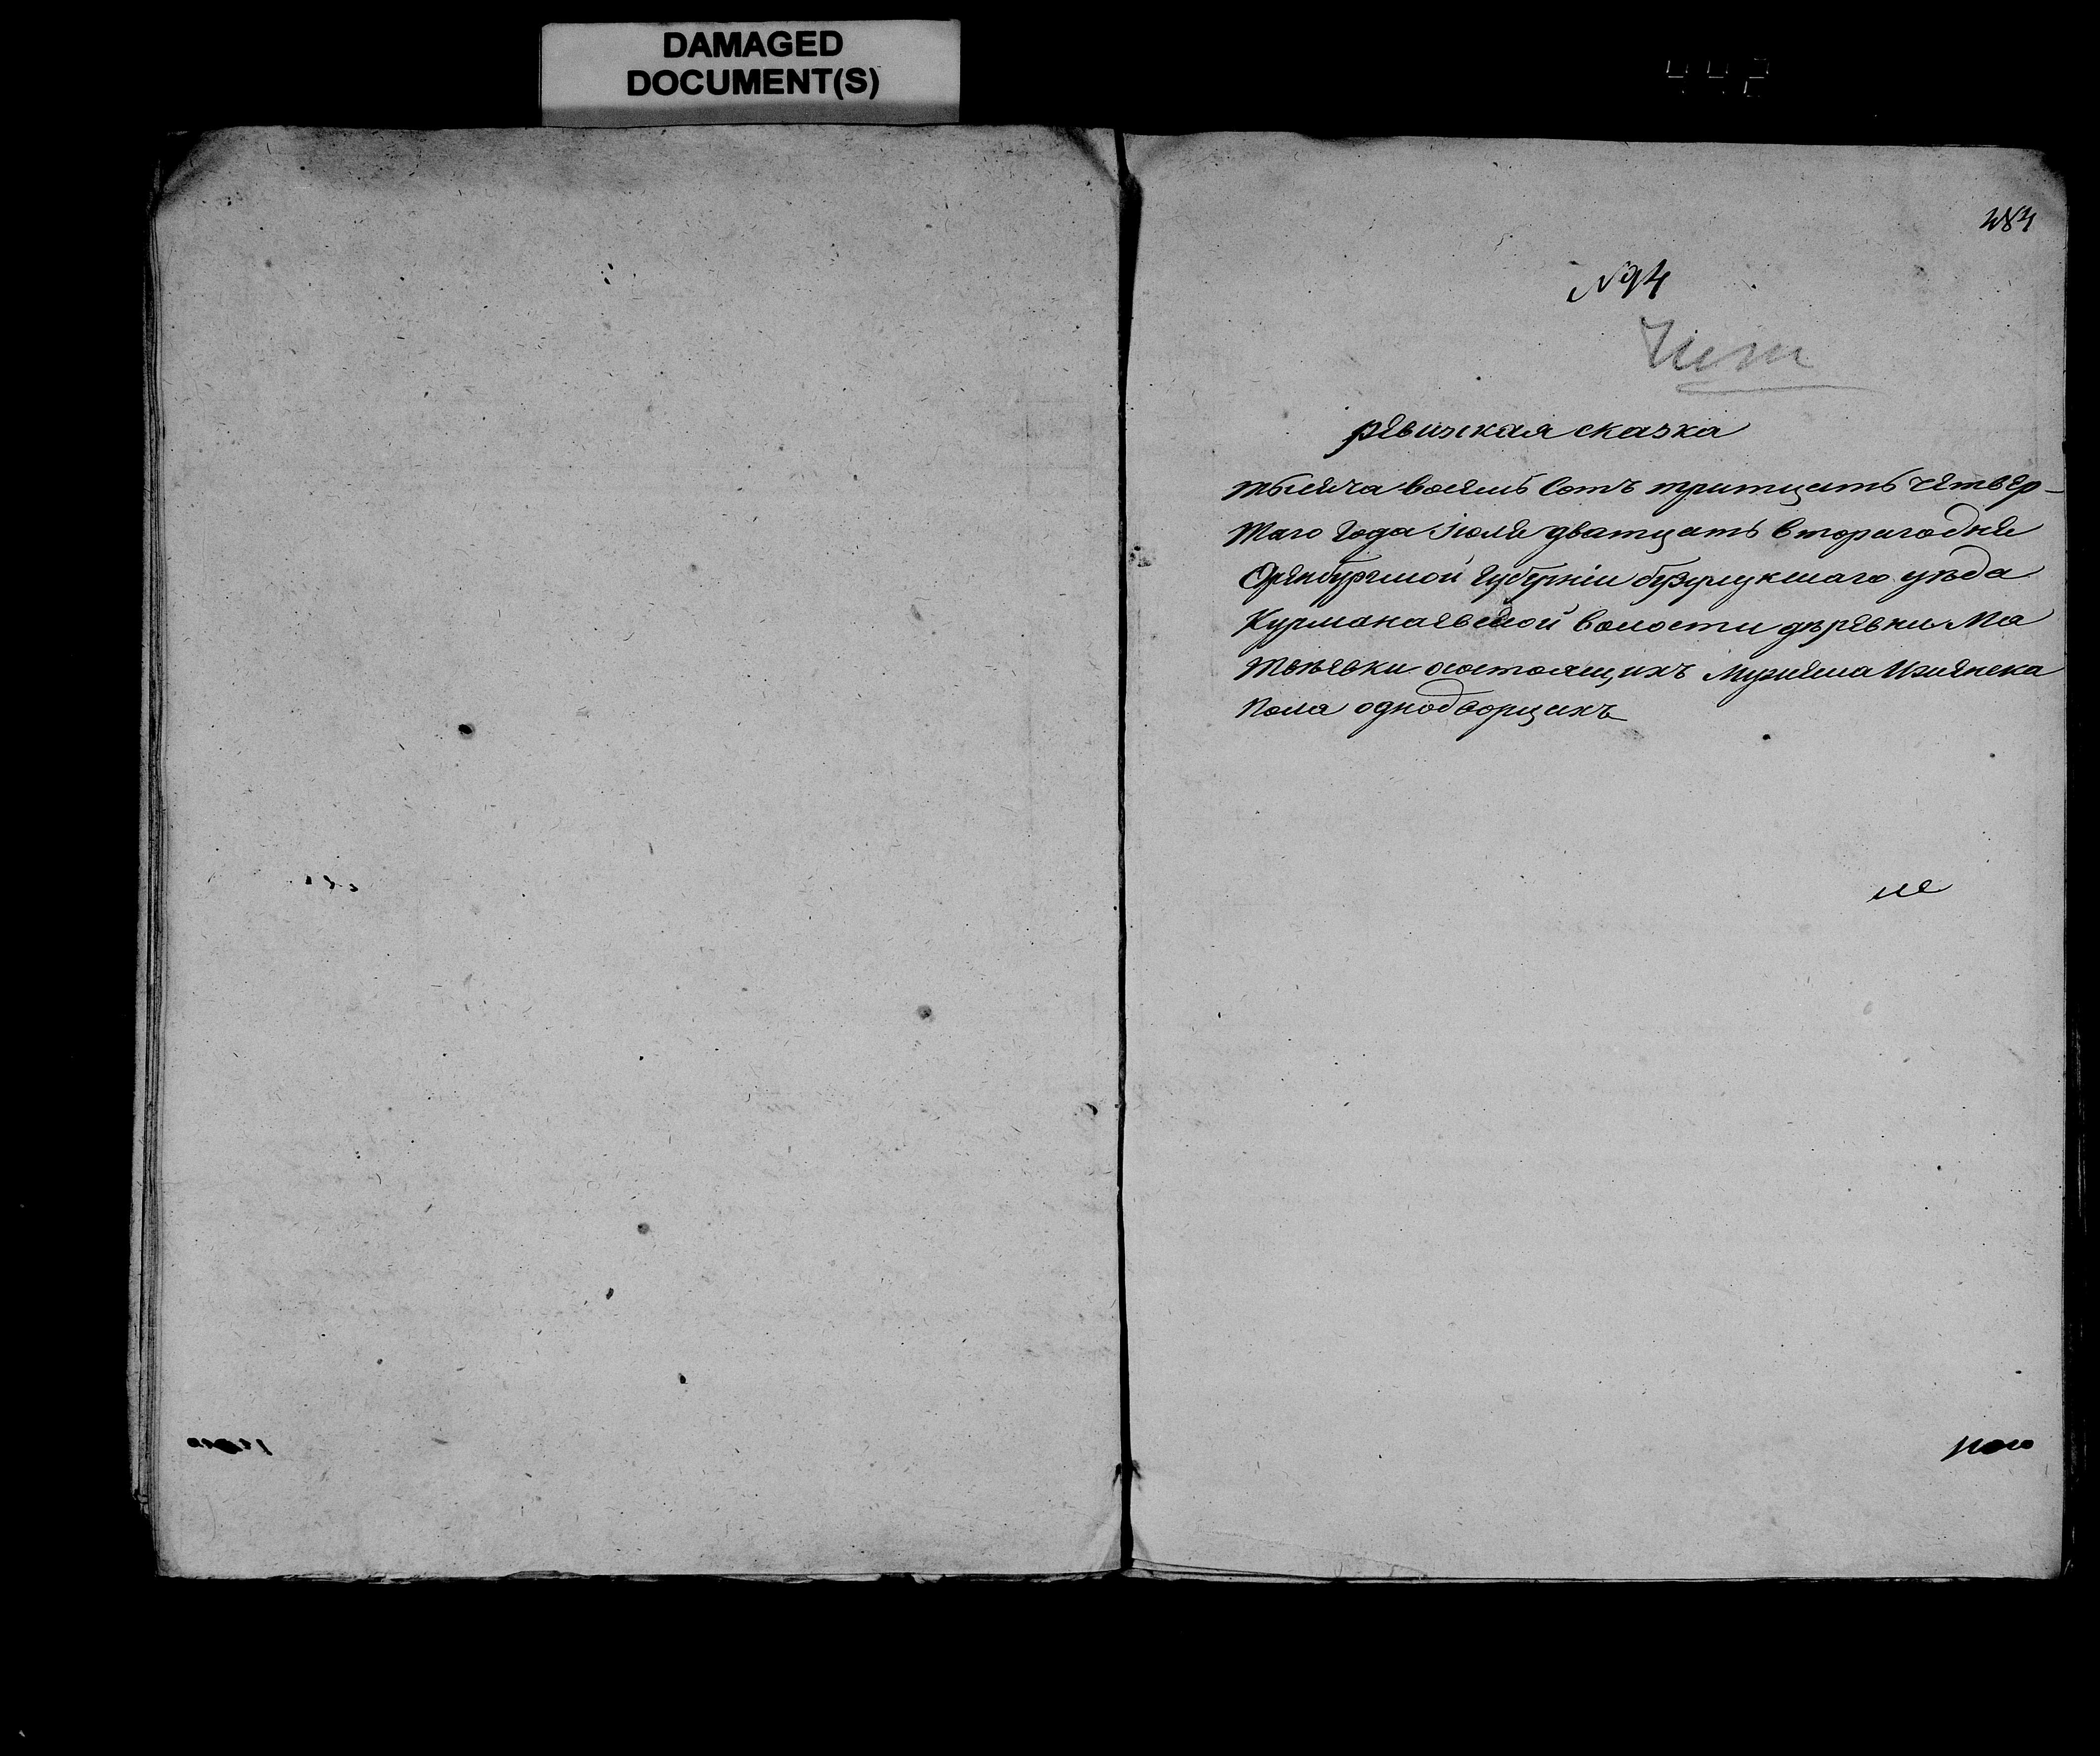 DAMAGED
DOCUMENT(S)
484
№94
Чит
ревизская сказка
тысяча восемь сотъ тритцать четвер-
таго года июля дватцать второго дня
Оренбургской губернии бузулукскаго уезда
Курманаевской волости деревни Ма
твеевки состоящихъ Мужеска и женска
пола однодворцахъ